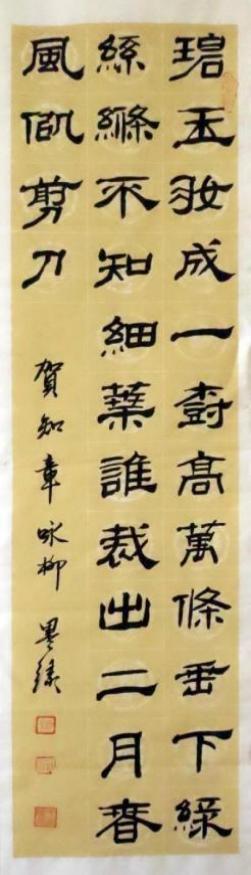 碧玉妝成一樹高萬條垂下綠
絲縧不知細葉誰裁出二月春
風似剪刀
賀知章咏柳